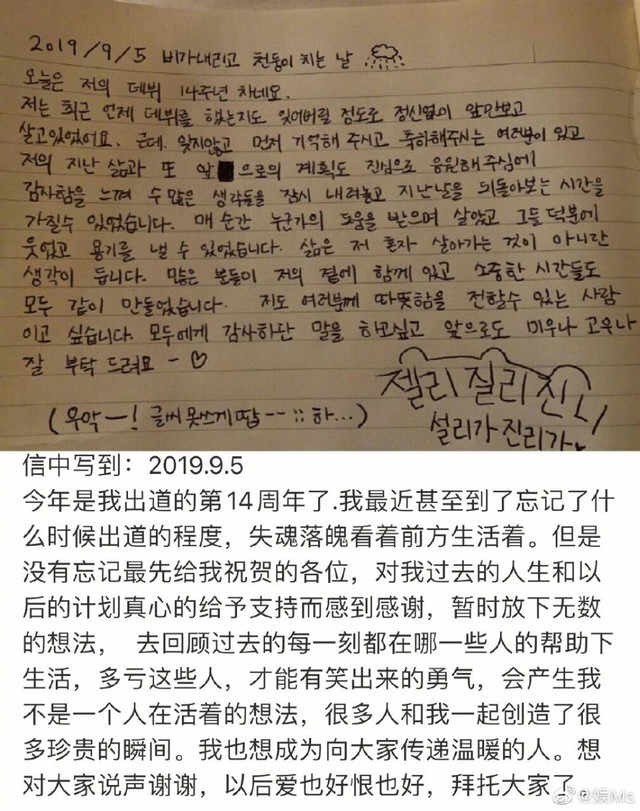 2019/9/5 비가내리고 천둥이 치는 날
오늘은 저의 데뷔 14주년 차네요.
저는 최근 언제 데뷔를 했는지도 잊어버릴 정도로 정신없이 앞만보고
살고있었어요. 근데, 잊지않고 먼저 기억해 주시고 축하해주시는 여러분이 있고
저의 지난 삶과 또 앞으로의 계획도 진심으로 응원해주심에
감사함을 느껴 수많은 생각들을 잠시 내려놓고 지난날을 뒤돌아보는 시간을
가질수 있었습니다. 매 순간 누군가의 도움을 받으며 살았고 그들 덕분에
웃었고 용기를 낼 수 있었습니다. 삶은 저 혼자 살아가는 것이 아니란
생각이 듭니다. 많은 분들이 저의 곁에 함께 있고 소중한 시간들도
모두 같이 만들었습니다. 저도 여러분께 따뜻함을 전할수 있는 사람
이고 싶습니다. 모두에게 감사하단 말을 하고싶고 앞으로도 미우나 고우나
잘 부탁 드려요 - ♡
젤리 질리 진리
(우악-! 글씨 못쓰게땁--;; 하...)
설리가 진리가
信中写到：2019.9.5
今年是我出道的第14周年了.我最近甚至到了忘记了什
么时候出道的程度，失魂落魄看着前方生活着。但是
没有忘记最先给我祝贺的各位，对我过去的人生和以
后的计划真心的给予支持而感到感谢，暂时放下无数
的想法， 去回顾过去的每一刻都在哪一些人的帮助下
生活，多亏这些人，才能有笑出来的勇气，会产生我
不是一个人在活着的想法，很多人和我一起创造了很
多珍贵的瞬间。我也想成为向大家传递温暖的人。想
对大家说声谢谢，以后爱也好恨也好，拜托大家了。
@娱Ms